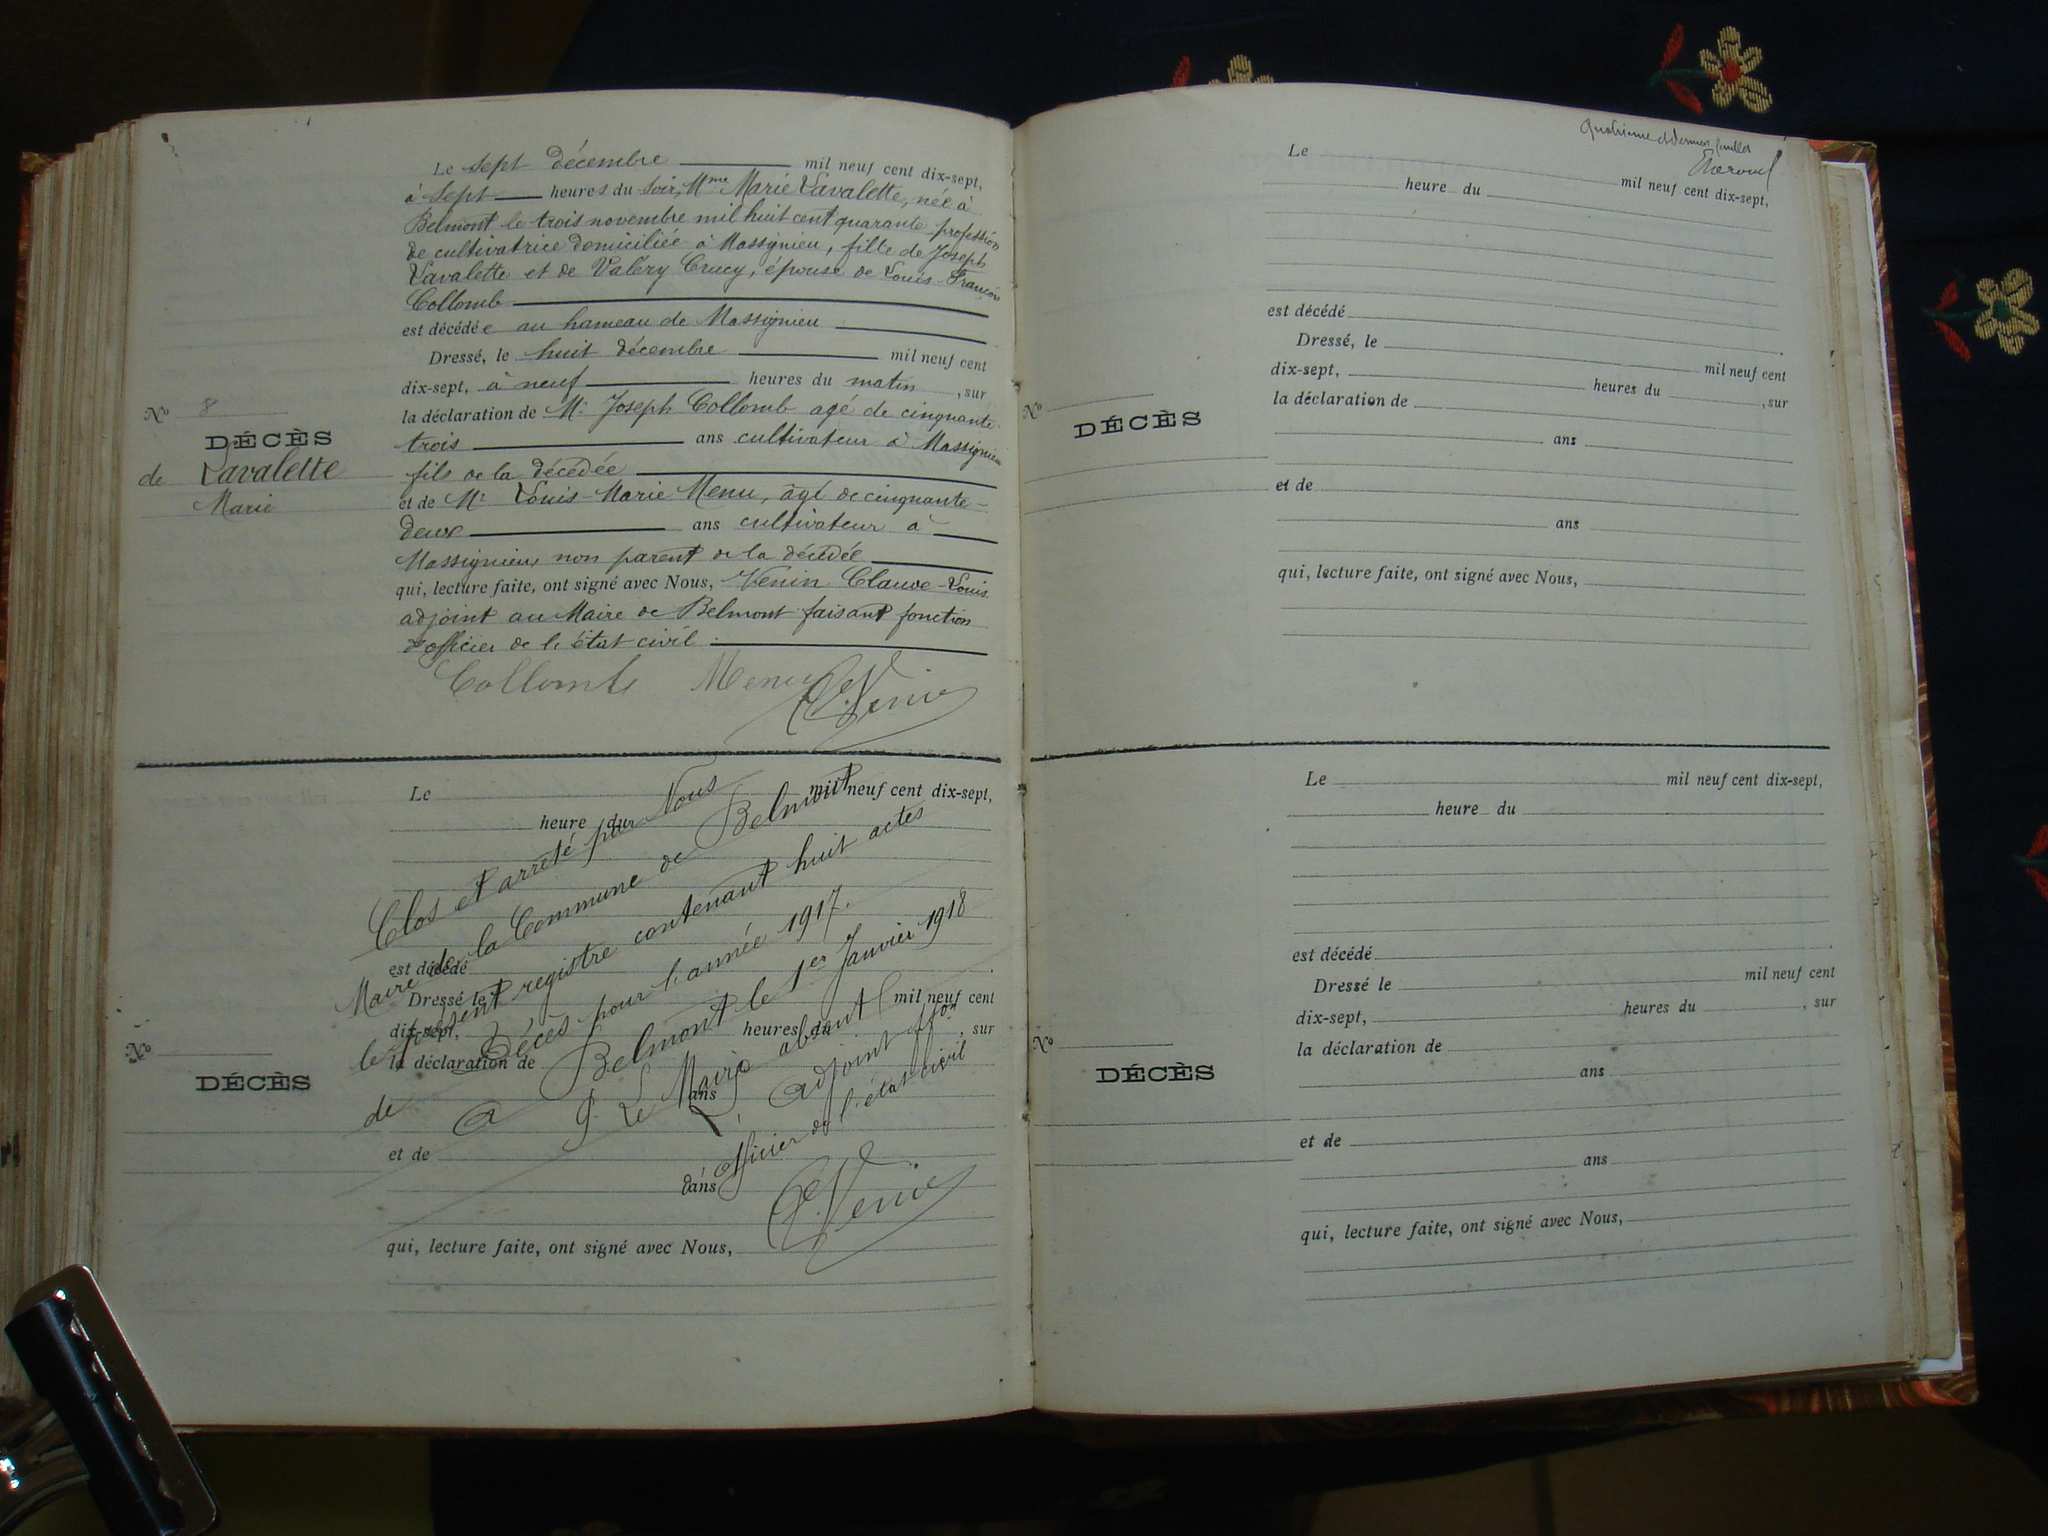 Le sept décembre mil neuf cent dix-sept,
à sept heures du soir, Mme Marie Lavalette, née à
Belmont le trois novembre mil huit cent quarante profession
de cultivatrice domiciliée à Massignieu, fille de Joseph
Lavalette et de Valéry Crucy, épouse de Louis-François
Collomb
est décédée au hameau de Massignieu
Dressé, le huit décembre mil neuf cent
dix-sept, à neuf heures du matin, sur
la déclaration de Mr Joseph Collomb agé de cinquante
trois ans cultivateur à Massignieu
fils de la décédée
et de Mr Louis-Marie Menu, âgé de cinquante-
deux ans cultivateur à
Massignieu, non parent de la décédée
qui, lecture faite, ont signé avec Nous, Venin Claude-Louis
adjoint au Maire de Belmont faisant fonction
d'officier de l'état civil
Collomb Menu C. Venin
No 8
DÉCÈS
de Lavalette
Marie
Le mil neuf cent dix-sept,
heure du
est décédé
Dressé le mil neuf cent
dix-sept, heures du, sur
la déclaration de
ans
et de
ans
qui, lecture faite, ont signé avec Nous,
Clos et arrêté par Nous
Maire de la Commune de Belmont
le présent registre contenant huit actes
de Décès pour l'année 1917.
A Belmont le 1er Janvier 1918
P. Le Maire absent
L'Adjoint
officier de l'état civil
C. Venin
No
DÉCÈS
Quatrième et dernier feuillet
Le mil neuf cent dix-sept,
heure du
est décédé
Dressé, le mil neuf cent
dix-sept, heures du, sur
la déclaration de
ans
et de
ans
qui, lecture faite, ont signé avec Nous,
No
DÉCÈS
Le mil neuf cent dix-sept,
heure du
est décédé
Dressé le mil neuf cent
dix-sept, heures du, sur
la déclaration de
ans
et de
ans
qui, lecture faite, ont signé avec Nous,
No
DÉCÈS